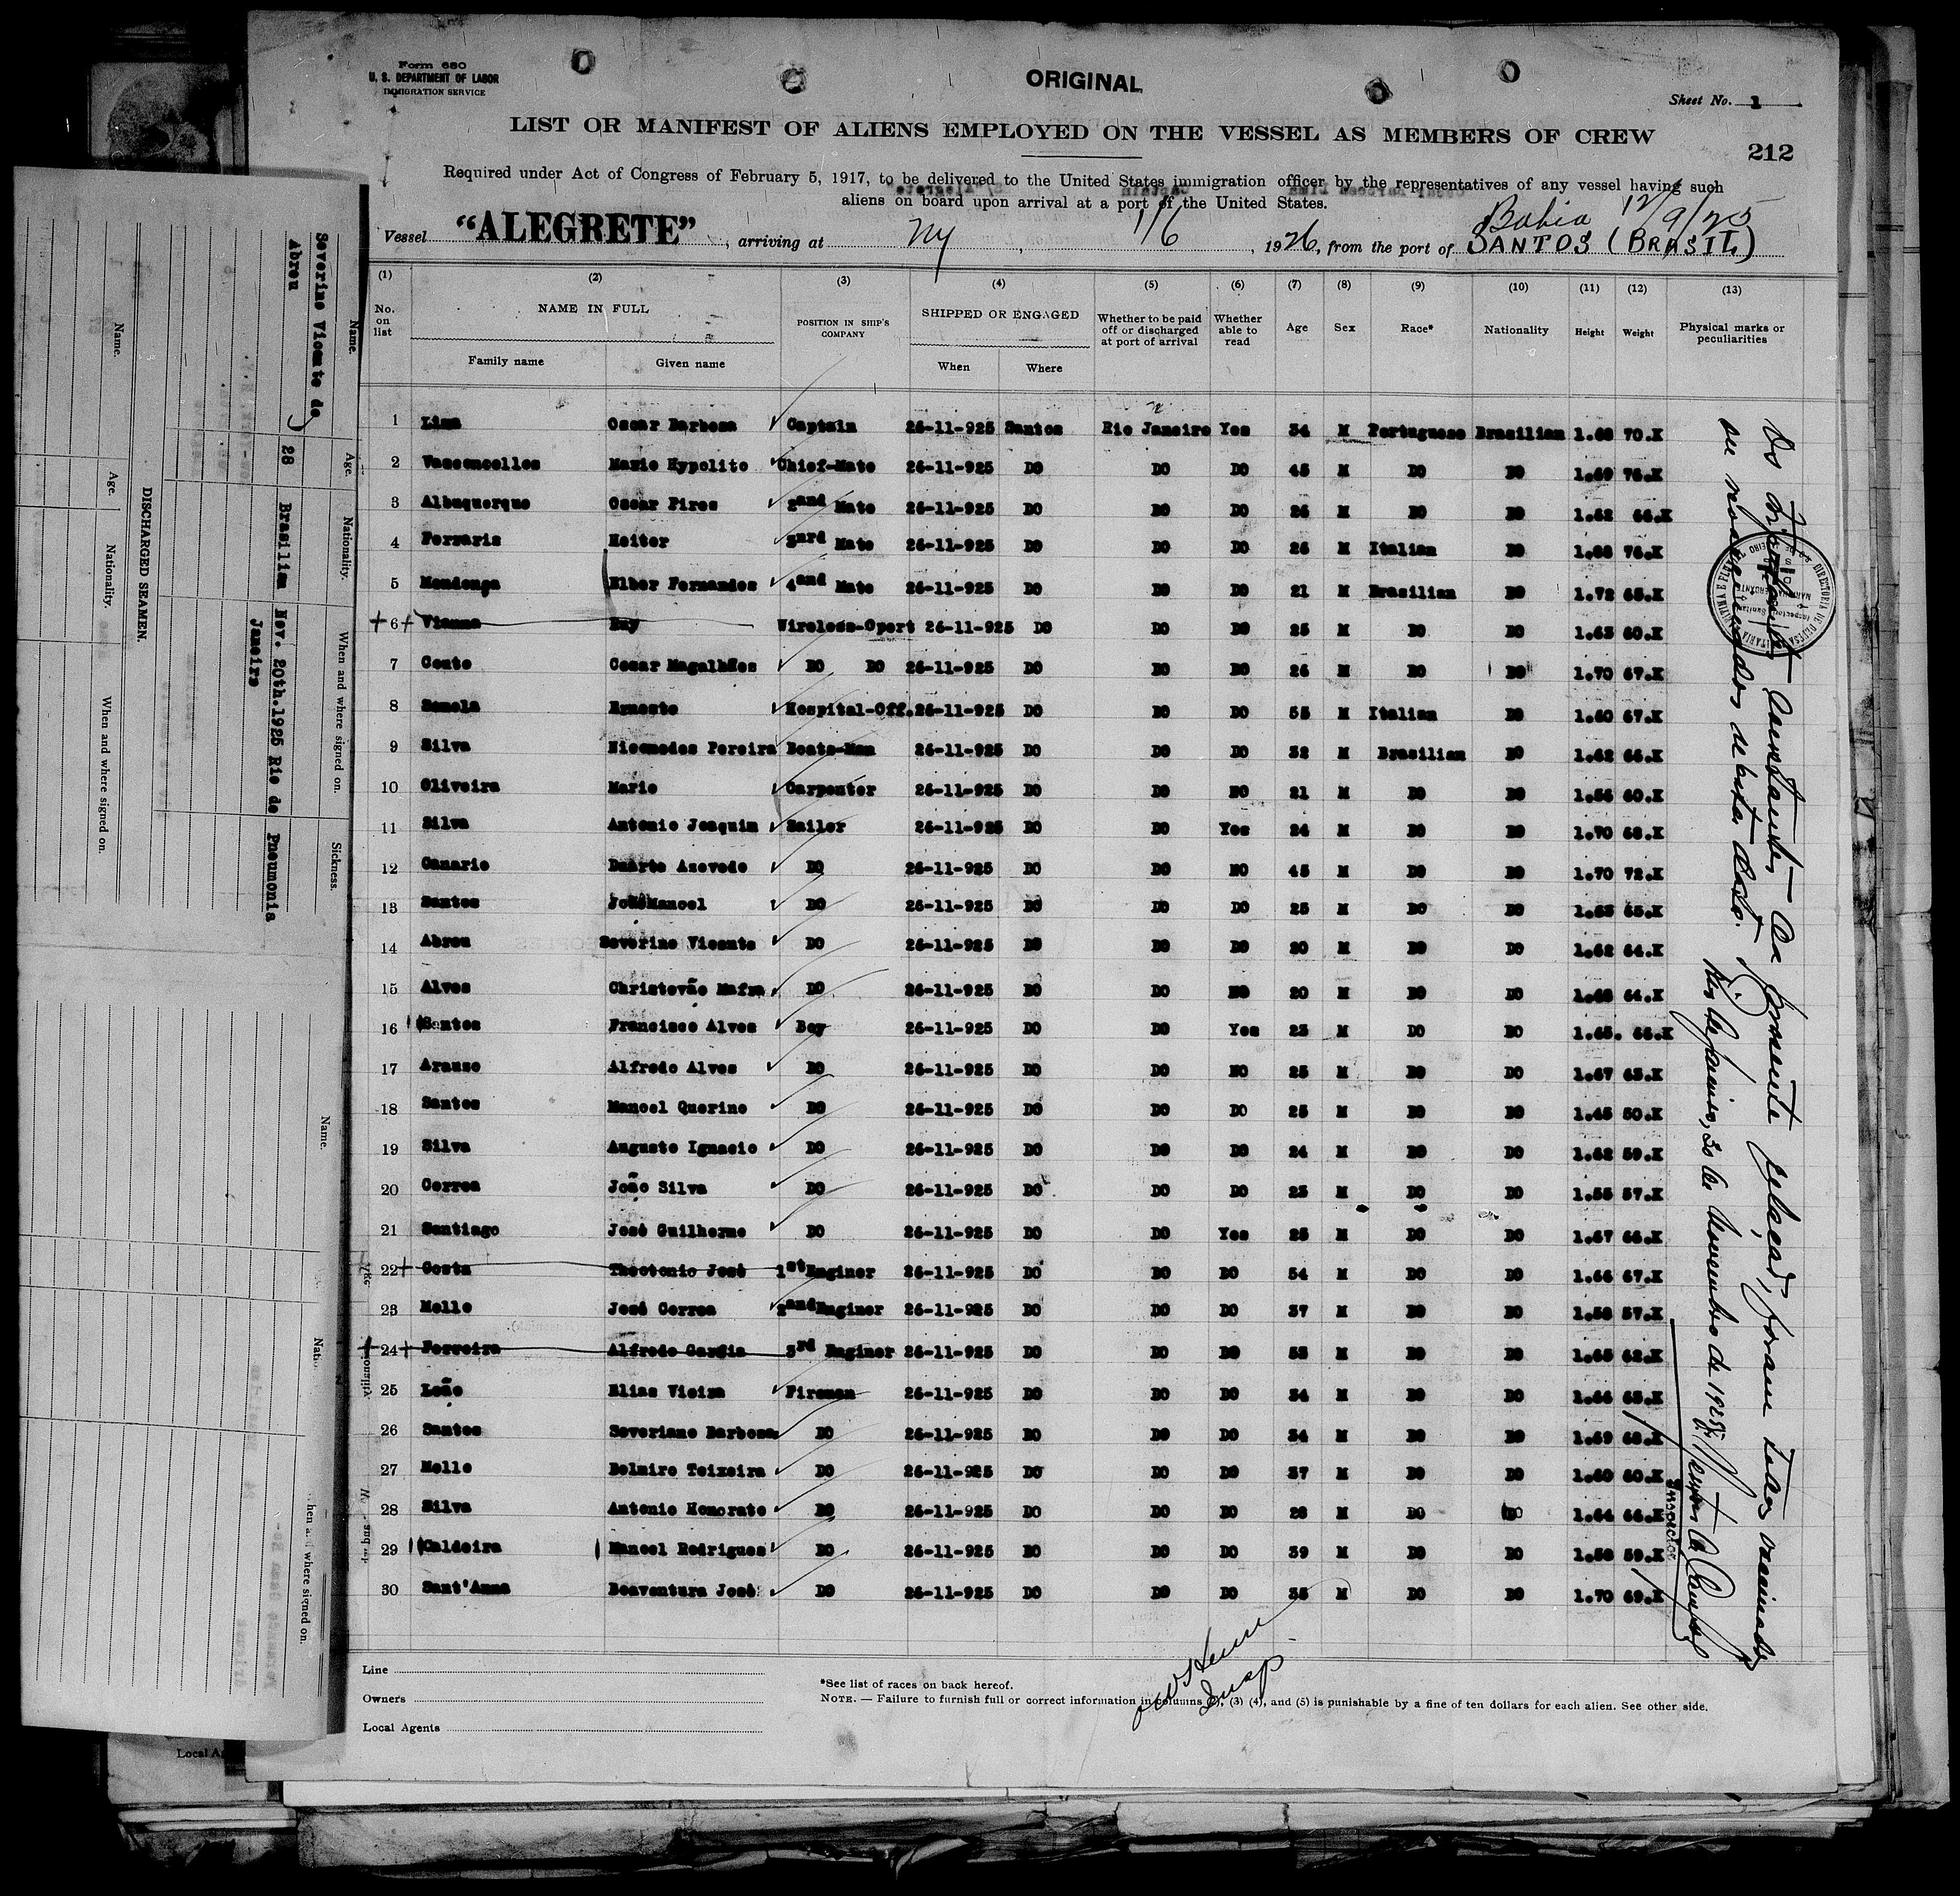 Form 680
U. S. DEPARTMENT OF LABOR
IMMIGRATION SERVICE
ORIGINAL
Sheet No. 1
LIST OR MANIFEST OF ALIENS EMPLOYED ON THE VESSEL AS MEMBERS OF CREW
212
Required under Act of Congress of February 5, 1917, to be delivered to the United States immigration officer by the representatives of any vessel having such
aliens on board upon arrival at a port of the United States.
Bahia 12/9/25
Vessel "ALEGRETE", arriving at NY, 1/6, 1926, from the port of SANTOS (BRASIL)
(1) (2) (3) (4) (5) (6) (7) (8) (9) (10) (11) (12) (13)
No. on list NAME IN FULL POSITION IN SHIP'S COMPANY SHIPPED OR ENGAGED Whether to be paid off or discharged at port of arrival Whether able to read Age Sex Race* Nationality Height Weight Physical marks or peculiarities
Family name Given name When Where
1 Lima Oscar Barbosa Captain 26-11-925 Santos Rio Janeiro Yes 34 M Portuguese Brasilian 1.68 70.K
2 Vasconcellos Mario Hypolito Chief-Mate 26-11-925 DO DO DO 45 M DO DO 1.69 76.K
3 Albuquerque Oscar Pires 2and Mate 26-11-925 DO DO DO 26 M DO DO 1.62 66.K
4 Ferraris Heitor 3nrd Mate 26-11-925 DO DO DO 26 M Italian DO 1.68 76.K
5 Mendonça Elber Fernandes 4and Mate 26-11-925 DO DO DO 21 M Brasilian DO 1.72 65.K
6 Vianna Ruy Wireless-Opert 26-11-925 DO DO DO 25 M DO DO 1.63 60.K
7 Couto Cesar Magalhães DO DO 26-11-925 DO DO DO 26 M DO DO 1.70 67.K
8 Semola Ernesto Hospital-Off. 26-11-925 DO DO DO 55 M Italian DO 1.60 67.K
9 Silva Nicomedes Pereira Boats-Man 26-11-925 DO DO DO 32 M Brasilian DO 1.62 66.K
10 Oliveira Mario Carpenter 26-11-925 DO DO NO 21 M DO DO 1.56 60.K
11 Silva Antonio Joaquim Sailor 26-11-925 DO DO Yes 24 M DO DO 1.70 68.K
12 Canario Duarte Azevedo DO 26-11-925 DO DO NO 45 M DO DO 1.70 72.K
13 Santos José Manoel DO 26-11-925 DO DO DO 25 M DO DO 1.65 65.K
14 Abreu Severino Vicente DO 26-11-925 DO DO DO 20 M DO DO 1.62 64.K
15 Alves Christovão Mafra DO 26-11-925 DO DO NO 20 M DO DO 1.68 64.K
16 Santos Francisco Alves Boy 26-11-925 DO DO Yes 23 M DO DO 1.65. 66.K
17 Arauso Alfredo Alves DO 26-11-925 DO DO NO 25 M DO DO 1.67 65.K
18 Santos Manoel Querino DO 26-11-925 DO DO DO 25 M DO DO 1.45 50.K
19 Silva Augusto Ignacio DO 26-11-925 DO DO DO 24 M DO DO 1.62 59.K
20 Correa João Silva DO 26-11-925 DO DO DO 23 M DO DO 1.55 57.K
21 Santiago José Guilherme DO 26-11-925 DO DO Yes 25 M DO DO 1.67 66.K
22 Costa Theotonio José 1st Enginer 26-11-925 DO DO DO 54 M DO DO 1.66 67.K
23 Mello José Correa 2and Enginer 26-11-925 DO DO DO 37 M DO DO 1.58 57.K
24 Ferreira Alfredo Garcia 3rd Enginer 26-11-925 DO DO DO 53 M DO DO 1.65 62.K
25 Leão Elias Vieira Fireman 26-11-925 DO DO DO 34 M DO DO 1.66 65.K
26 Santos Severiano Barbosa DO 26-11-925 DO DO DO 34 M DO DO 1.69 68.K
27 Mello Belmiro Teixeira DO 26-11-925 DO DO DO 37 M DO DO 1.60 60.K
28 Silva Antonio Honorato DO 26-11-925 DO DO DO 28 M DO DO 1.64 66.K
29 Caldeira Manoel Rodrigues DO 26-11-925 DO DO DO 39 M DO DO 1.58 59.K
30 Sant'Anna Boaventura José DO 26-11-925 DO DO DO 35 M DO DO 1.70 69.K
Line
Owners
Local Agents
*See list of races on back hereof.
NOTE. — Failure to furnish full or correct information in columns (3) (4), and (5) is punishable by a fine of ten dollars for each alien. See other side.
Insp
Os tripolantes constantes da presente relação, foram todos vaccinados
ou revaccinados de data.
Rio de Janeiro, 30 de Novembro de 1925
Inspector
Name. Age. Nationality. When and where signed on. Sickness.
Severino Vicente de Abreu 28 Brasilian Nov. 20th.1925 Rio de Janeiro Pneumonia
DISCHARGED SEAMEN.
Name. Age. Nationality. When and where signed on.
Name.
where signed on.